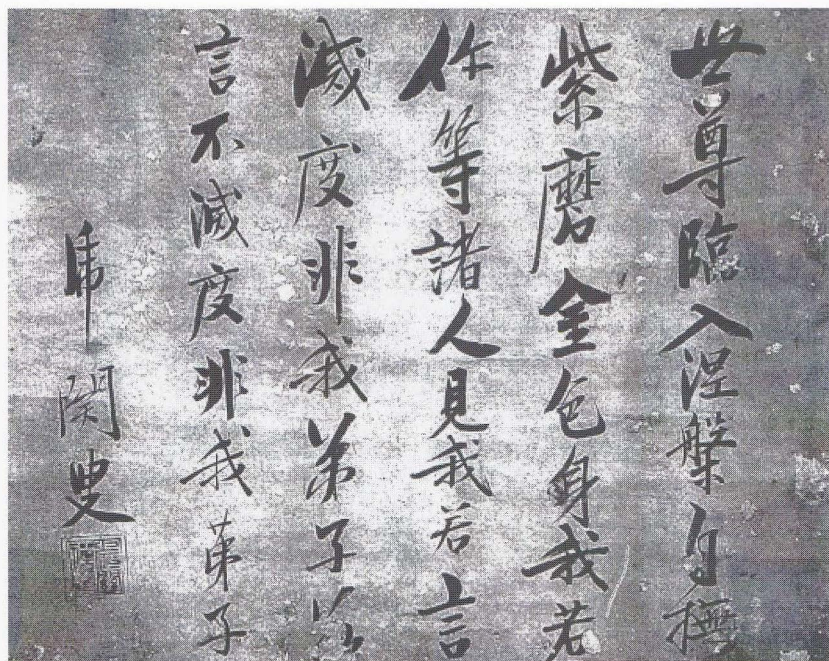 世尊臨入涅槃自撫
紫磨金色身我若
作等諸人見我若言
滅度非我弟子若
言不滅度非我弟子
虎関叟